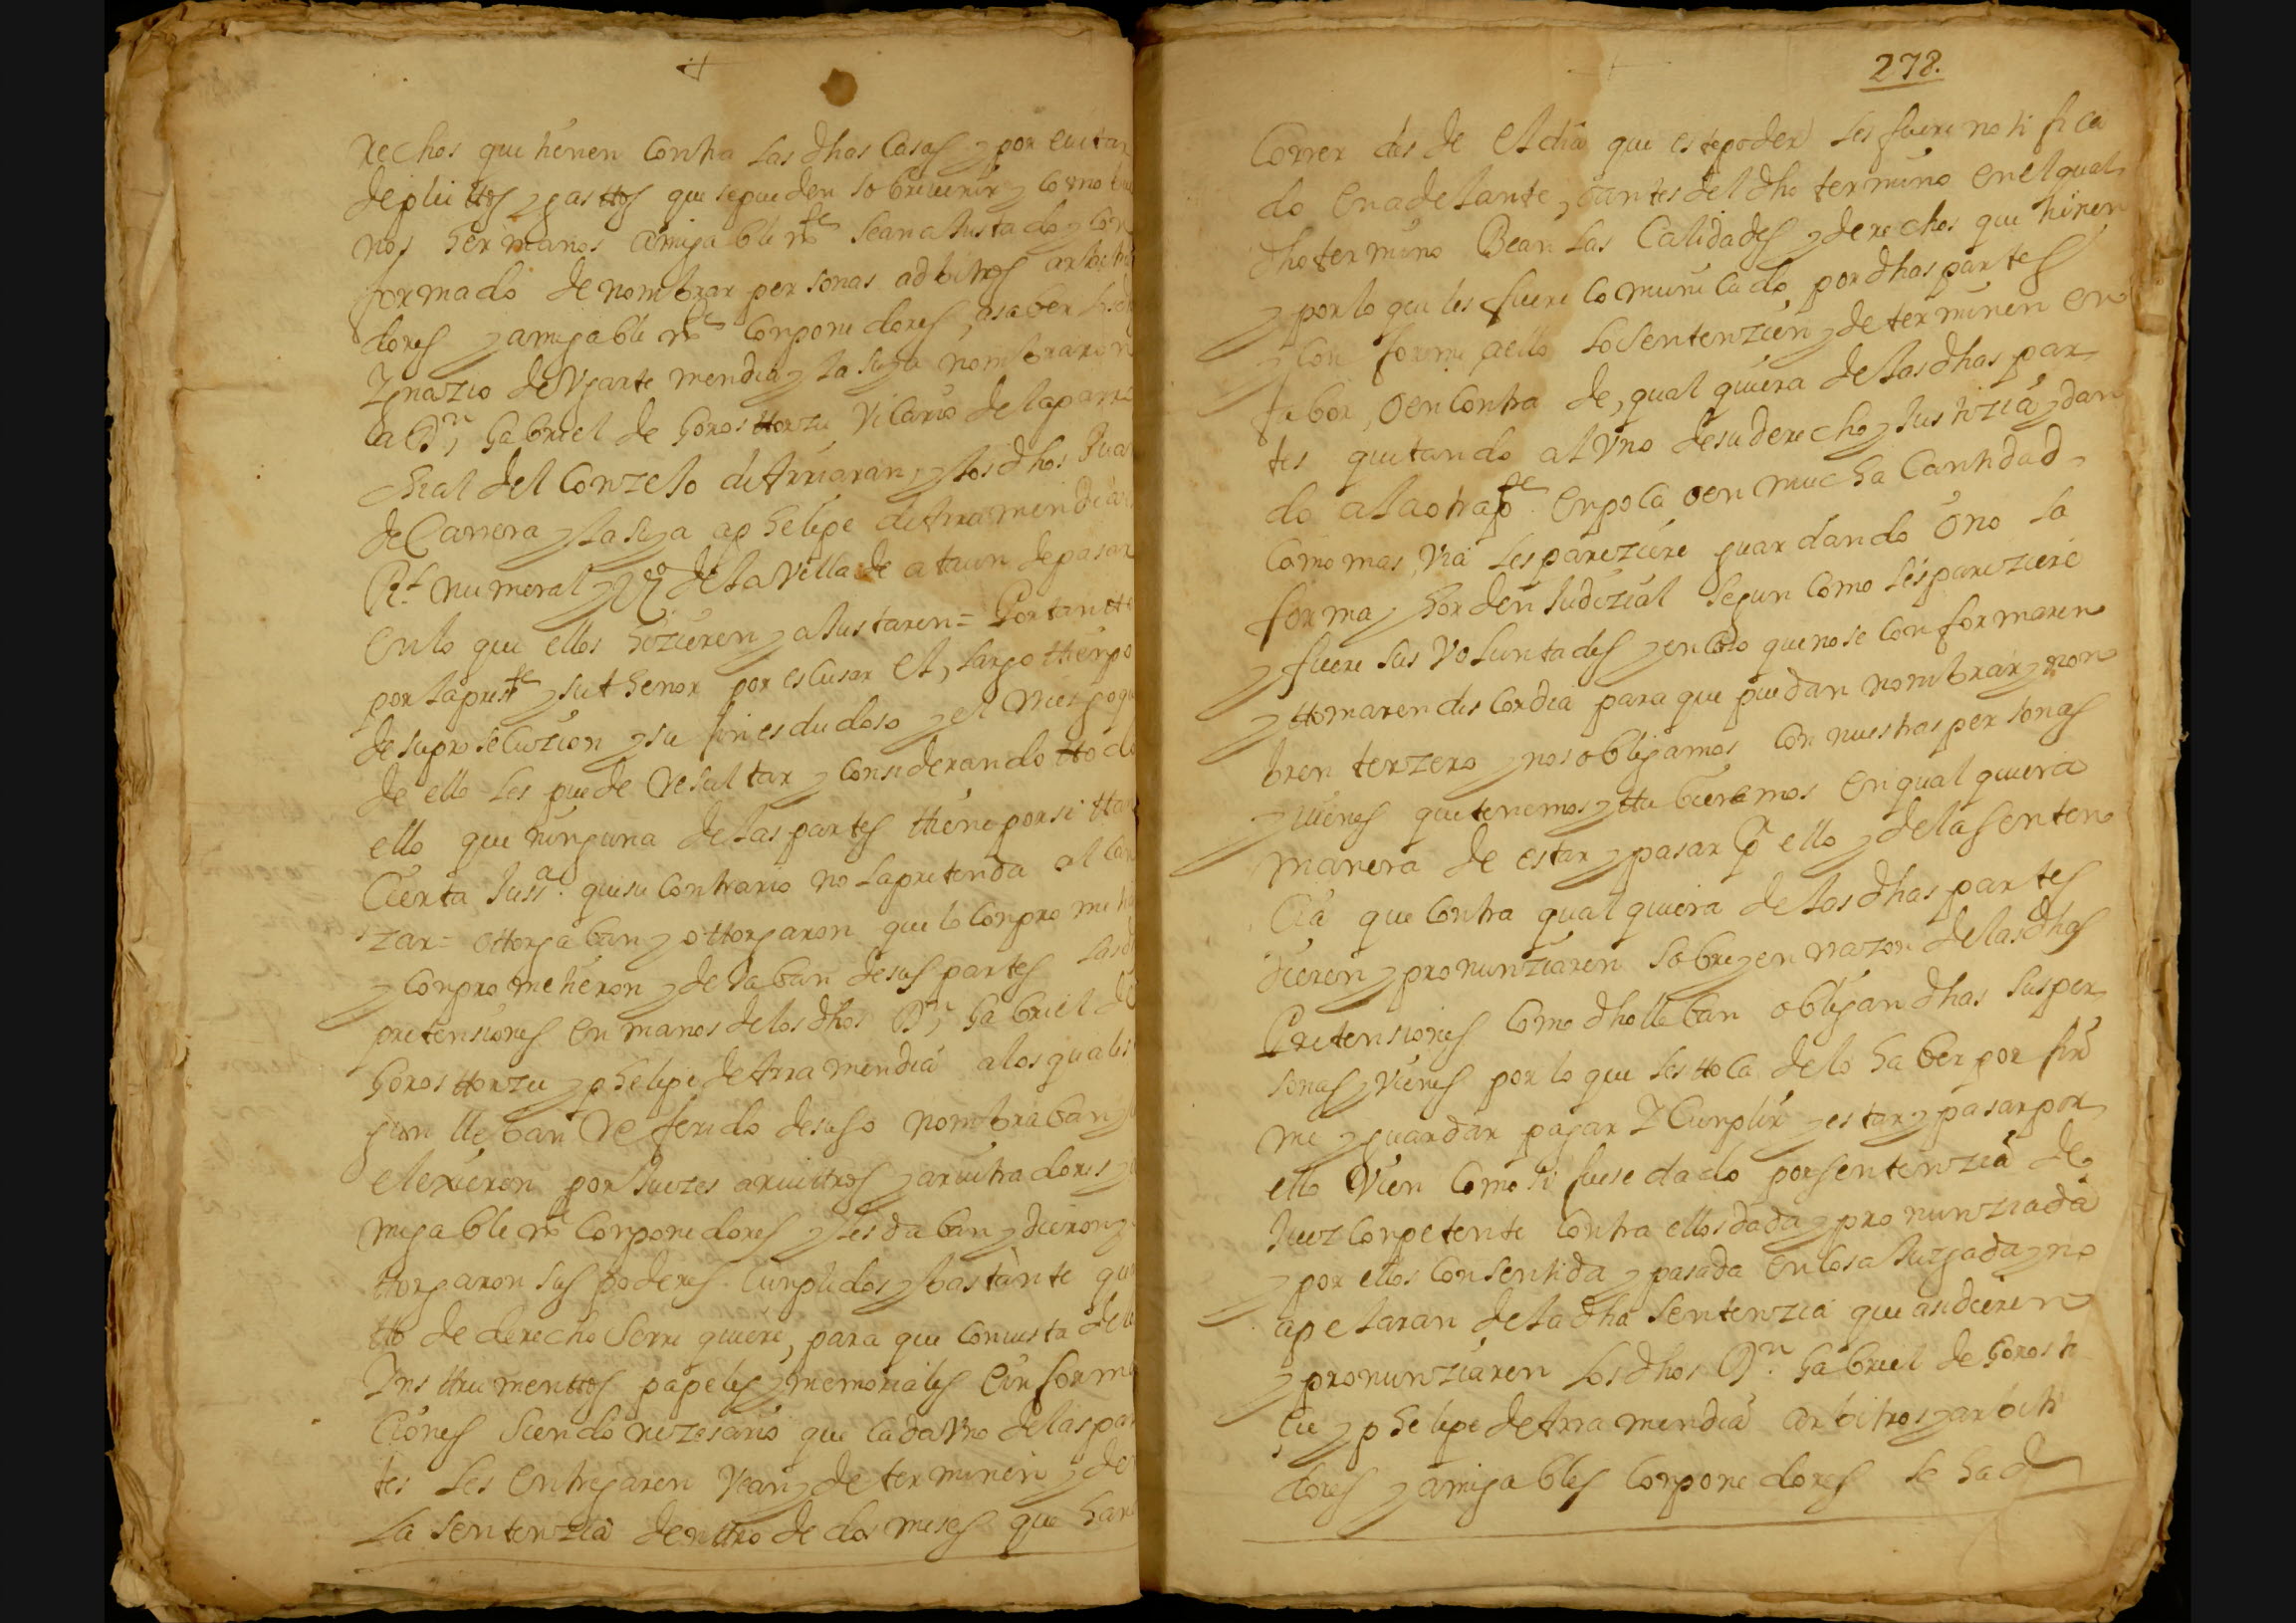 rechos que tienen Contra las dhas Casas y por euitar
de pleittos y gasttos que se pueden sobreuenir y como
nos hermanos amigablemte sean ajustado y con
formado de nombrar personas adbitros arbitra
dores y amigablemte Conponedores, asaber
Ygnazio de Vgartemendia y la suya nombraron
a Dn Gabriel de Gorosttorzu Vicario de la parro
chial del Conzejo de Arriaran, y los dhos Juan
de Carrera y la suya a phelipe de Arramendia
Rl numeral y de la Villa de ataun de pasar
en lo que ellos hizieren y ajustaren = Por tantto
por la preste y su thenor por escusar el, largo thienpo
de su prosecuzion y su fin es dudoso y el riesgo que
de ello les puede Resultar y Considerando ttodo
ello que ninguna de las partes thiene por si ttan
Cierta Jussa. que su Contrario no la pretenda alcan
zar = ottorgaban y ottorgaron que lo Conprometian
y Conprometieron y dejaban de sus partes las d
pretensiones en manos de los dhos Dn Gabriel de
Gorosttorzu y phelipe de Arramendia a los quales
segun lleban Referido de suso nombraban y
elexieron por Juezes aruittros y aruitradores y a
migablemte Conponedores y les daban y dieron y
ttorgaron sus poderes Cunplidos y bastante quan
tto de derecho Serrequiere, para que Con vista de los
Ynsttrumenttos papeles y memoriales E ynforma
Ciones Siendo nezesario que Cada Vno de las par
tes les entregaren Vean y determinen y den
La sentenzia denttro de dos meses que han
278.
Correr desde el dia que este poder les fuere notifica
do en adelante, o antes del dho termino en el qual
dho termino Bean las Calidades y derechos que tienen
y por lo que les fuere Comunicado por dhas partes
y Conforme aello lo sentenzien y determinen en
fabor, o en Contra de, qual quiera de las dhas par
tes quitando al Vno de su derecho y Justizia y dan
do a la otra pte en poca o en mucha Cantidad
Como mas, Via les pareziere guardando o no la
forma y horden Judizial segun Como les pareziere
y fuere sus Voluntades y en Caso que no se Conformaren
y ttomaren discordia para que puedan nombrar y non
bren terzero y nos obligamos Con nuestras personas
y vienes que tenemos y ttubieremos en qual quiera
manera de estar y pasar Por ello y de la senten
Cia que Contra qual quiera de las dhas partes
dieren y pronunziaren sobre y en razon de las dhas
Pretensiones Como dho lleban obligan dhas sus per
sonas y vienes por lo que les ttoca de lo haber por fir
me y guardar pagar Y Cunplir y estar y pasar por
ello Vien Como si fuese dado por sentenzia de
Juez Conpetente Contra ellos dada y pronunziada
y por ellos Consentida y pasada en Cosa Juzgada y no
apelaran de la dha sentenzia que asi dieren
y pronunziaren los dhos Dn. Gabriel de Gorosti
Cu y phelipe de Arramendia arbitros y arbitra
dores y amigables Conponedores se had